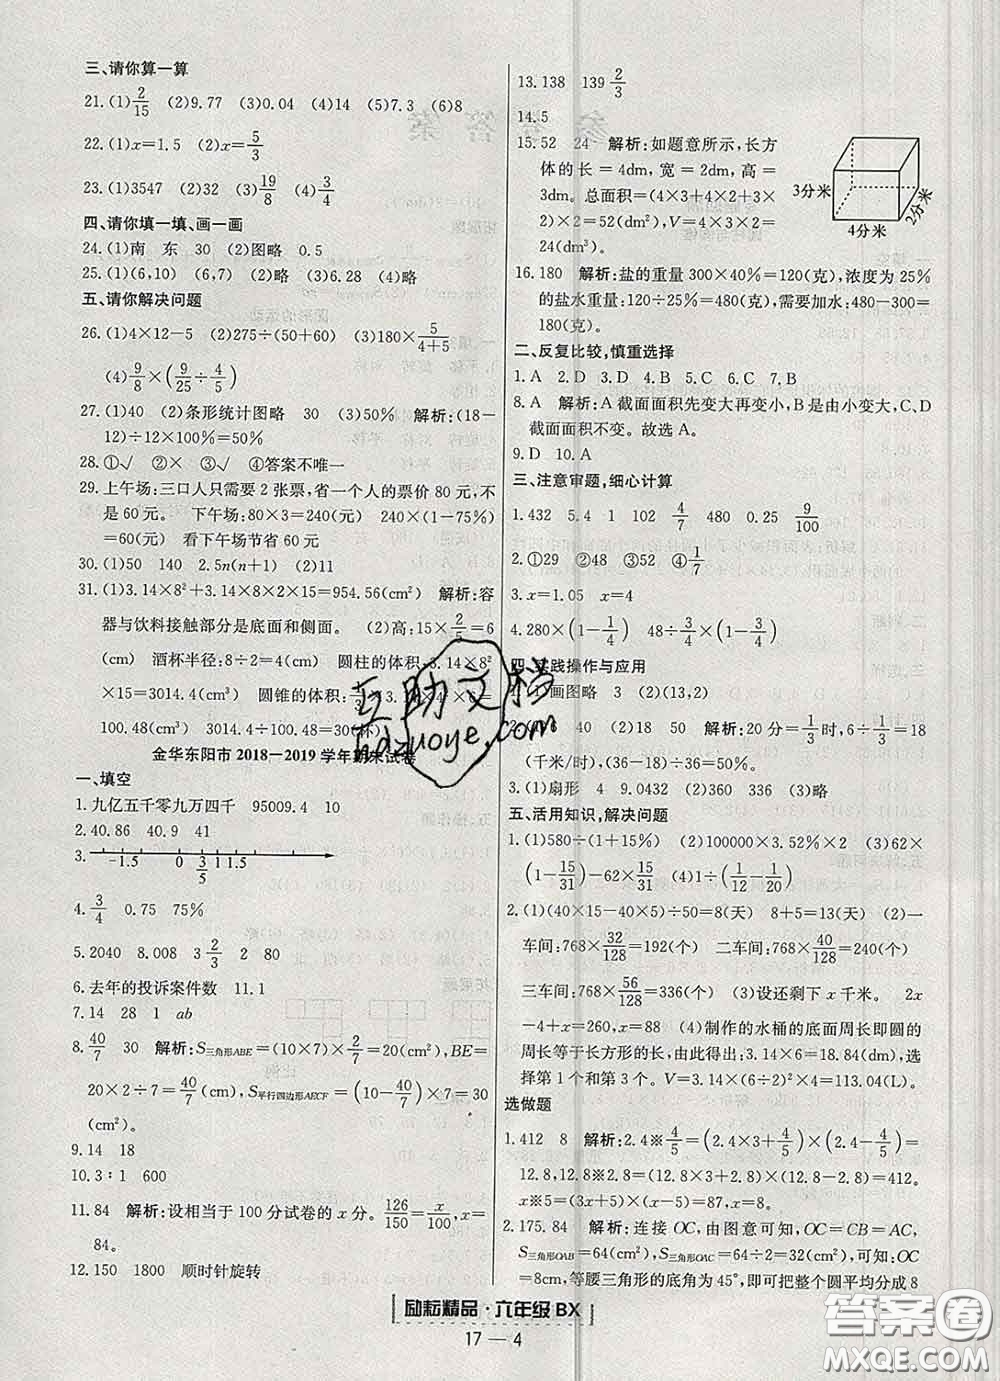 三、请你算一算
21.(1)2/15 (2)9.77 (3)0.04 (4)14 (5)7.3 (6)8
22.(1)x=1.5 (2)x=5/3
23.(1)3547 (2)32 (3)19/8 (4)3/4
四、请你填一填、画一画
24.(1)南 东 30 (2)图略 0.5
25.(1)(6,10) (6,7) (2)略 (3)6.28 (4)略
五、请你解决问题
26.(1)4×12-5 (2)275÷(50+60) (3)180×5/(4+5)
(4)9/8×(9/25÷4/5)
27.(1)40 (2)条形统计图略 30 (3)50% 解析:(18-
12)÷12×100%=50%
28.①√ ②× ③√ ④答案不唯一
29.上午场:三口人只需要2张票,省一个人的票价80元,不
是60元。 下午场:80×3=240(元) 240×(1-75%)
=60(元) 看下午场节省60元
30.(1)50 140 2.5n(n+1) (2)11
31.(1)3.14×8²+3.14×8×2×15=954.56(cm²) 解析:容
器与饮料接触部分是底面和侧面。 (2)高:15×2/5=6
(cm) 酒杯半径:8÷2=4(cm) 圆柱的体积:3.14×8²
×15=3014.4(cm³) 圆锥的体积:1/3×3.14×4²×6=
100.48(cm³) 3014.4÷100.48=30(杯)
金华东阳市2018—2019学年期末试卷
一、填空
1.九亿五千零九万四千 95009.4 10
2.40.86 40.9 41
3. -1.5 0 3/5 1 1.5
4.3/4 0.75 75%
5.2040 8.008 3 2/3 2 80
6.去年的投诉案件数 11.1
7.14 28 1 ab
8.40/7 30 解析:S三角形ABE=(10×7)×2/7=20(cm²),BE=
20×2÷7=40/7(cm),S平行四边形AECF=(10-40/7)×7=30
(cm²)。
9.14 18
10.3∶1 600
11.84 解析:设相当于100分试卷的x分。126/150=x/100,x=
84。
12.150 1800 顺时针旋转
13.138 139 2/3
14.5
15.52 24 解析:如题意所示,长方
体的长=4dm,宽=2dm,高=
3dm。总面积=(4×3+4×2+3×
2)×2=52(dm²),V=4×3×2=
24(dm³)
3分米
4分米
2分米
16.180 解析:盐的重量300×40%=120(克),浓度为25%
的盐水重量:120÷25%=480(克),需要加水:480-300=
180(克)。
二、反复比较,慎重选择
1.A 2.D 3.A 4.B 5.C 6.C 7.B
8.A 解析:A截面面积先变大再变小,B是由小变大,C、D
截面面积不变。故选A。
9.D 10.A
三、注意审题,细心计算
1.432 5.4 1 102 4/7 480 0.25 9/100
2.①29 ②48 ③52 ④1/7
3.x=1.05 x=4
4.280×(1-1/4) 48÷3/4×(1-3/4)
四、实践操作与应用
1.(1)画图略 3 (2)(13,2)
40 (2)20 50 解析:20分=1/3时,6÷1/3=18
(千米/时)
3.(1)扇形 4 9.0432 (2)360 336 (3)略
五、活用知识,解决问题
1.(1)580÷(1+15%) (2)100000×3.52%×2 (3)62×
(1-15/31)-62×15/31 (4)1÷(1/12-1/20)
2.(1)(40×15-40×5)÷50=8(天) 8+5=13(天) (2)一
车间:768×32/128=192(个) 二车间:768×40/128=240(个)
三车间:768×56/128=336(个) (3)设还剩下x千米。 2x
-4+x=260,x=88 (4)制作的水桶的底面周长即圆的
周长等于长方形的长,由此得出:3.14×6=18.84(dm),选
择第1个和第3个。V=3.14×(6÷2)²×4=113.04(L)
选做题
1.412 8 解析:2.4※4/5=(2.4×3+4/5)×(2.4-4/5)=
12.8,12.8※2.8=(12.8×3+2.8)×(12.8-2.8)=412,
x※5=(3x+5)×(x-5)=87,x=8。
2.175.84 解析:连接OC,由图意可知:OC=CB=AC,
S三角形OAB=64(cm²),S三角形OAC=64÷2=32(cm²),可知:OC
=8cm,等腰三角形的底角为45°,即可把整个圆平均分成8
励耘精品·六年级BX
17—4
互助文档
hdzuoye.com
答案圈
MXQE.COM